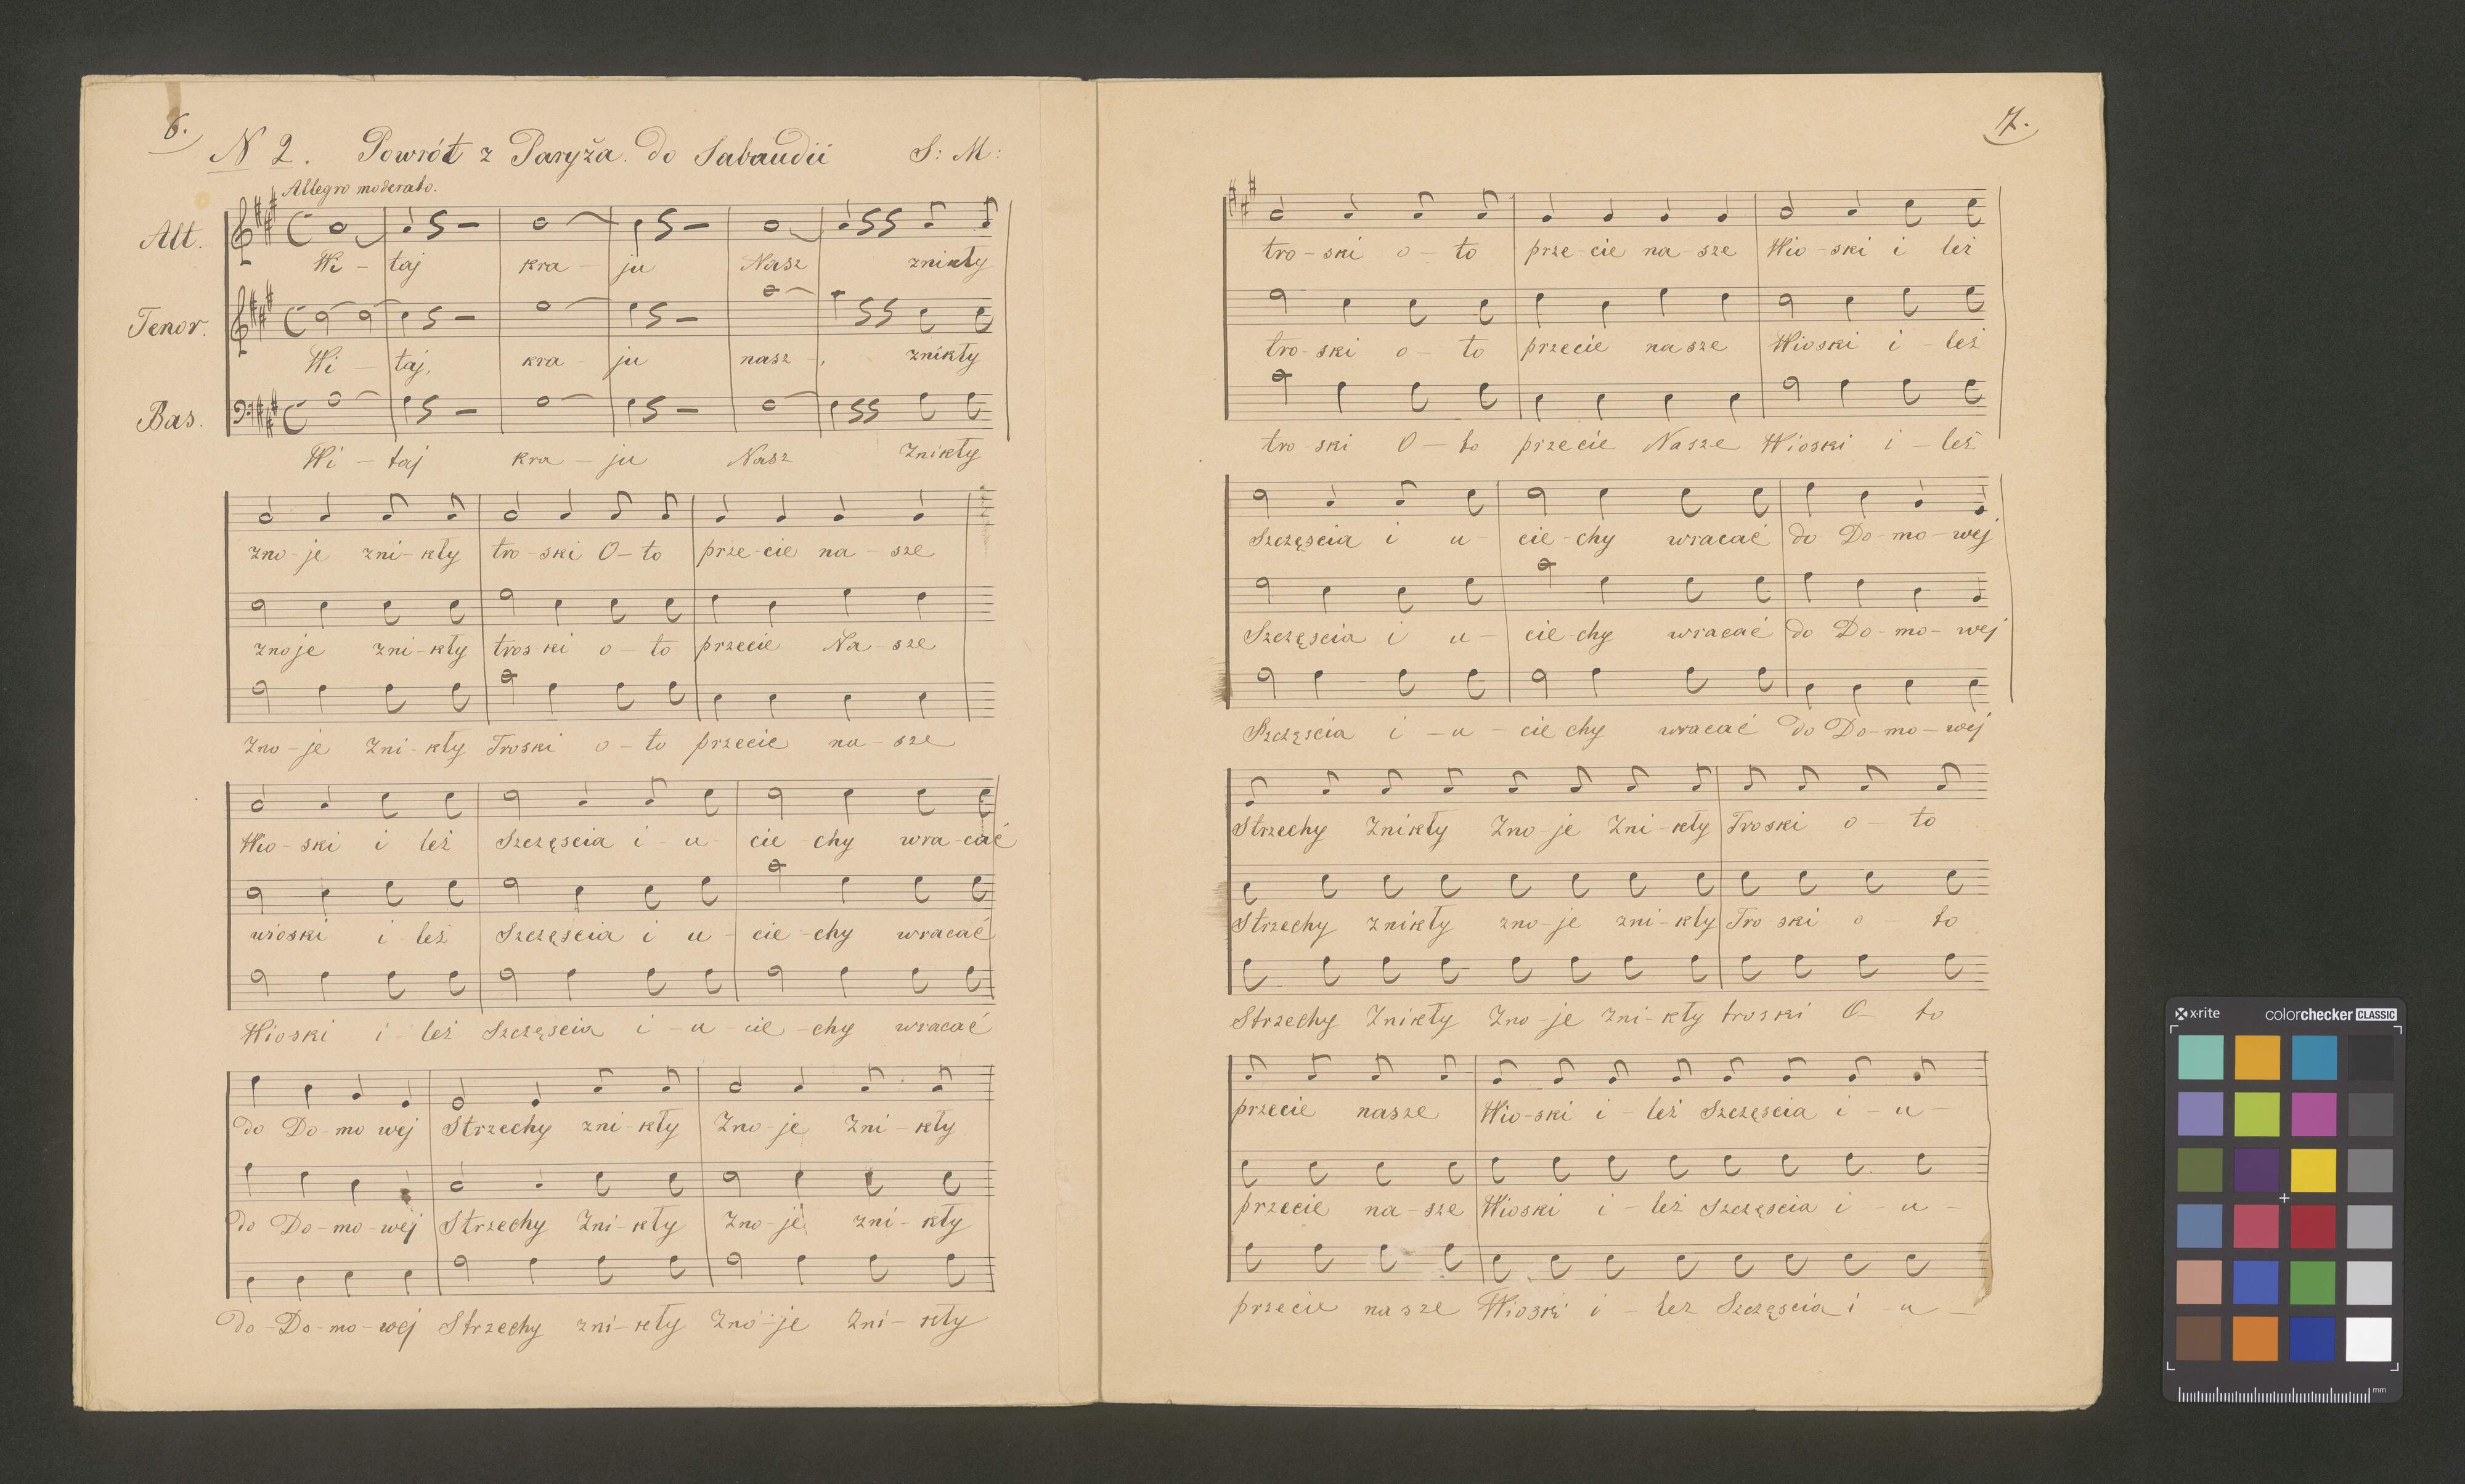 6.
N 2. Powrót z Paryża. do Sabaudii S: M:
Allegro moderato.
Alt.
Wi - taj kra - ju Nasz znikły
Tenor.
Wi - taj, kra ju nasz -, znikły
Bas.
Wi - taj kra - ju Nasz Znikły
zno - je zni - kły tro - ski O - to prze - cie na - sze
znoje zni - kły tros ki o - to przecie Na - sze
Zno - je Zni - kły Troski o - to przecie na - sze
Wio - ski i leż Szczęscia i - u - cie - chy wra - cać
wioski i leż Szczęscia i u - cie - chy wracać
Wioski i - leż Szczęscia i - u - cie - chy wracać
do Do - mo wej Strzechy zni - kły Zno - je Zni - kły
do Do - mo - wej Strzechy Zni - kły Zno - je zni - kły
do - Do - mo - wej Strzechy zni - kły Zno - je Zni - kły
7.
tro - ski o - to prze - cie na - sze Wio - ski i leż
tro - ski o - to przecie na sze Wioski i - leż
tro - ski O - to przecie Nasze Wioski i - leż
Szczęscia i u - cie - chy wracać do Do - mo - wej
Szczęscia i u - cie chy wracać do Do - mo - wej
Szczęscia i - u - cie chy wracać do Do - mo - wej
Strzechy Znikły Zno - je Zni - kły Troski o - to
Strzechy znikły zno - je zni - kły Tro ski o - to
Strzechy Znikły Zno - je zni - kły troski O - to
przecie nasze Wio - ski i - leż Szczęscia i - u -
przecie na - sze Wioski i - leż Szczęscia i - u -
przecie na sze Wioski i - lez Szczęscia i - u -
x-rite colorchecker CLASSIC
mm